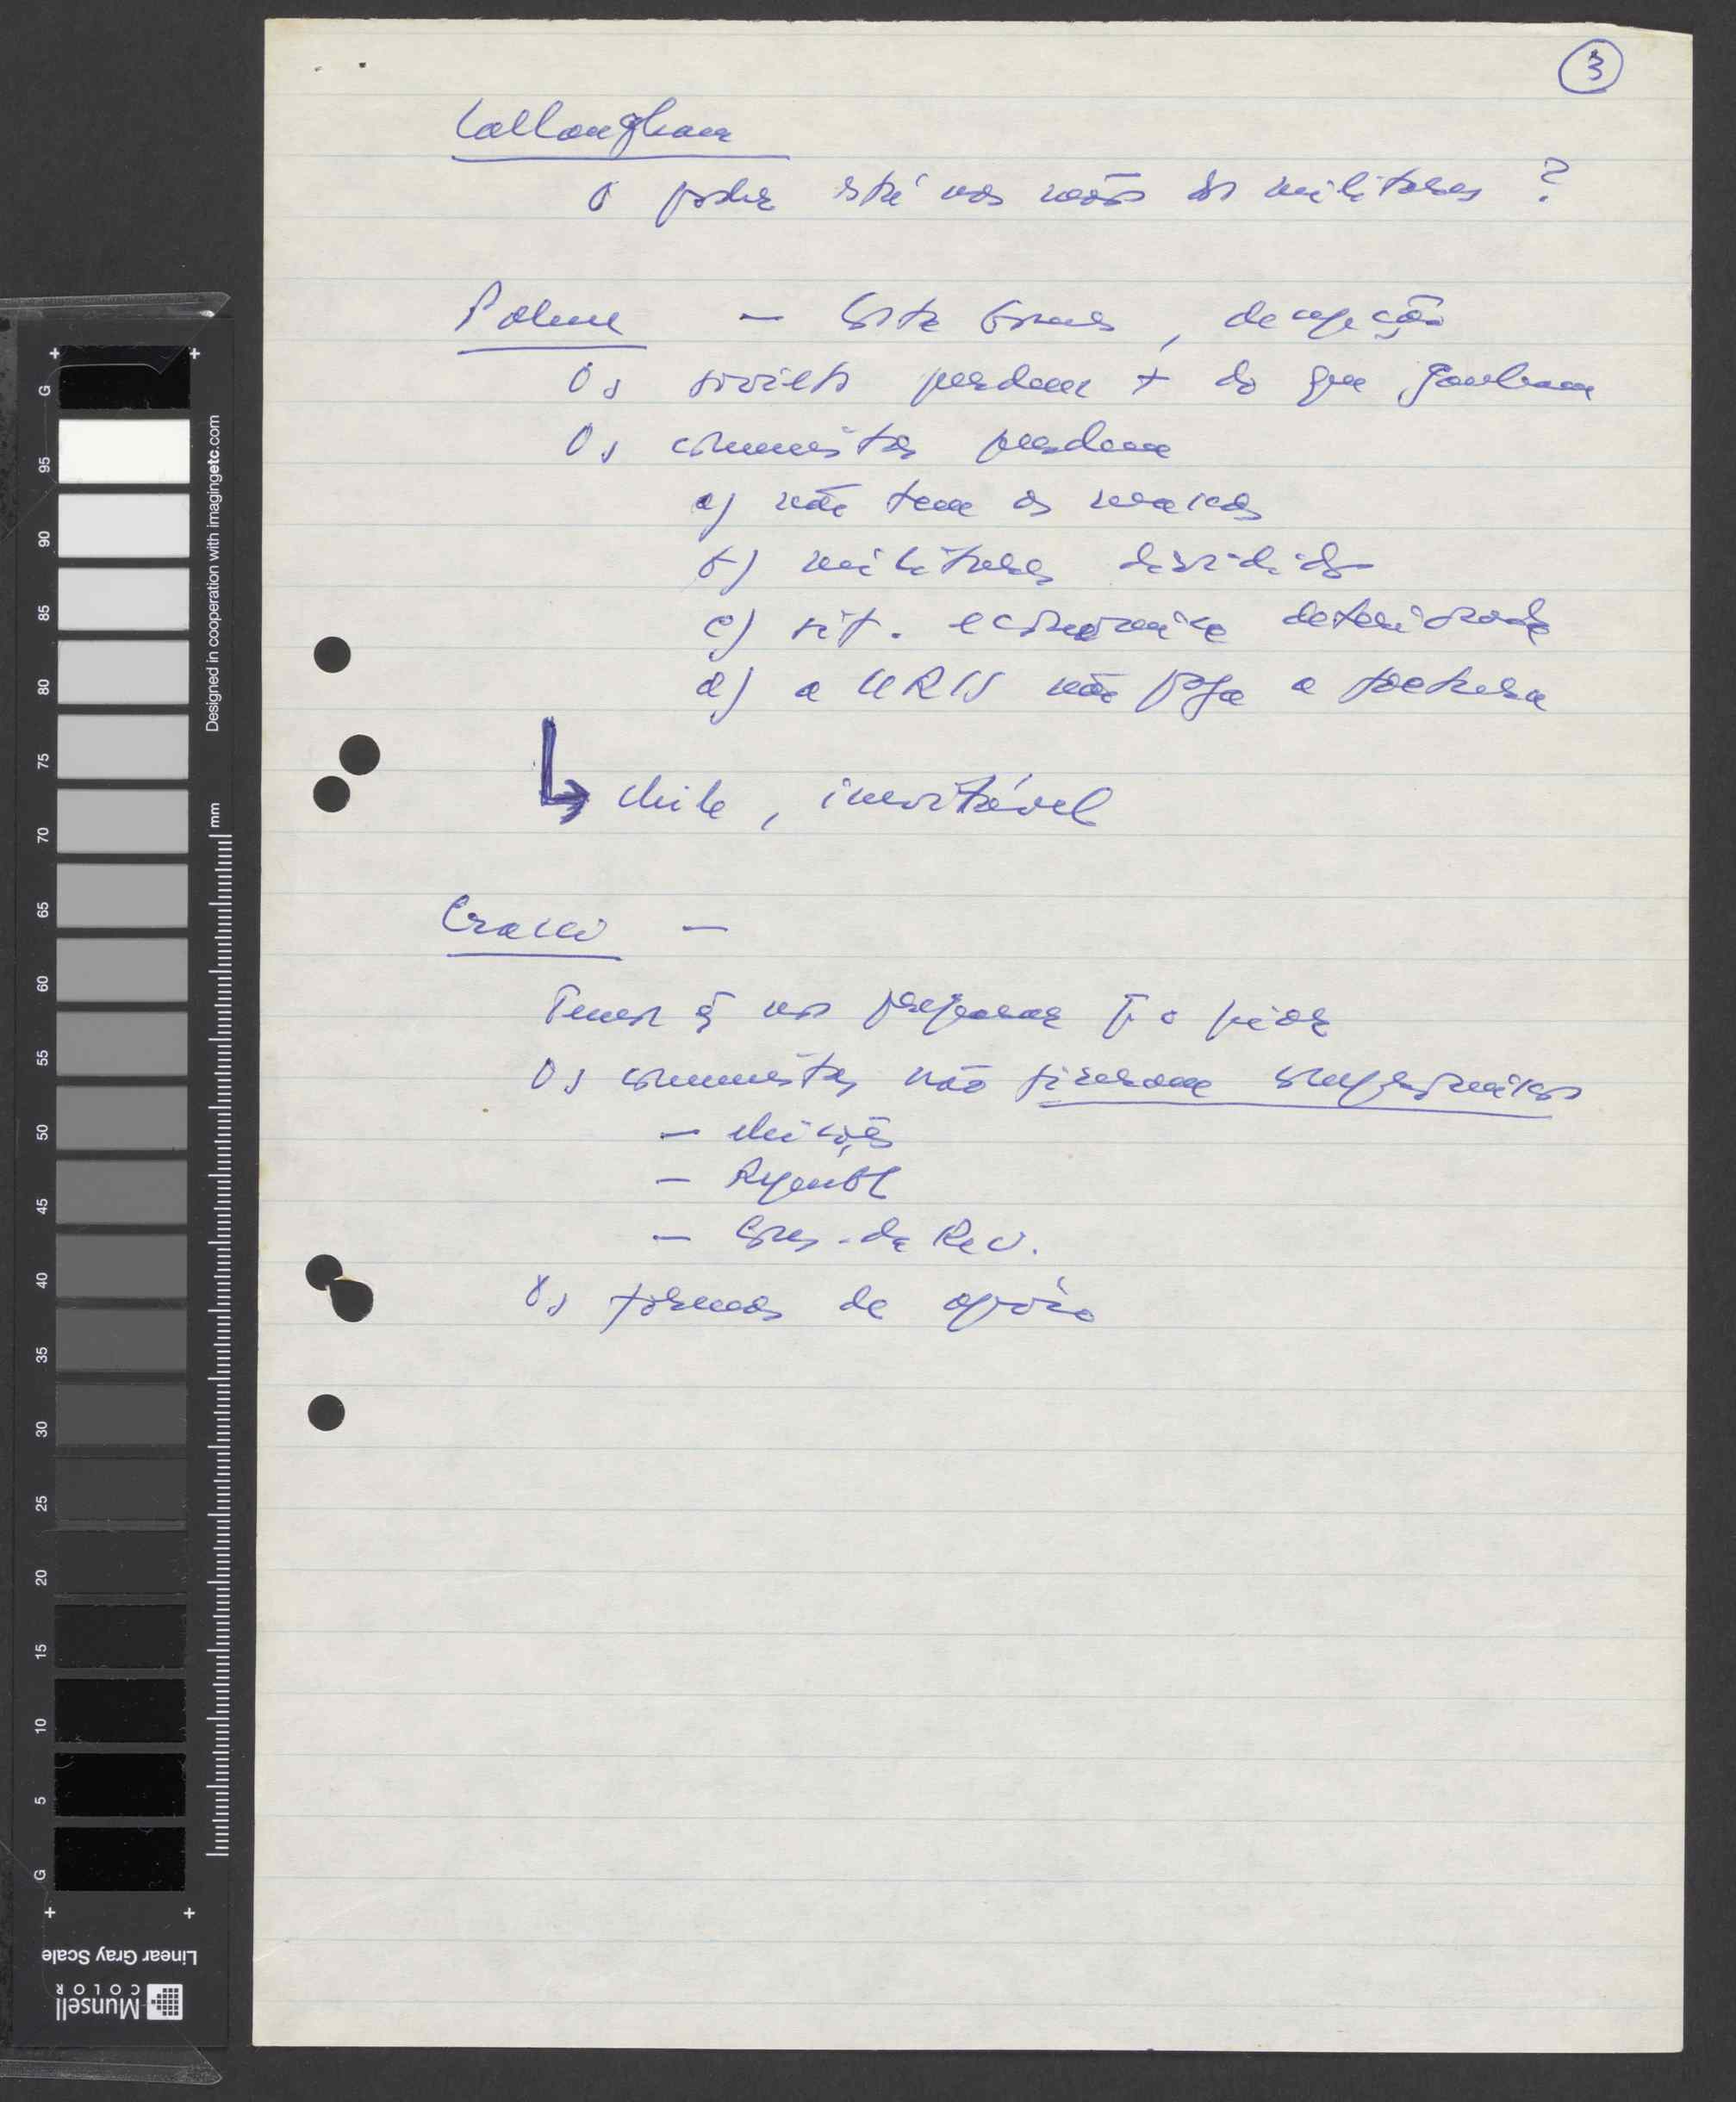 3
Callanghan
O poder está nas mãos dos militares ?
Palme — decepção
Os soviets perdem + do que ganham
Os comunistas perdem
a) não tem as
b) militares divididos
c) sit. económica deteriorada
d) a URSS não paga a factura
Chile, inevitável
Craxi —
Temos q̃ nos preparar p̃ o pior
Os comunistas não fizeram compromissos
— eleições
— Republ
— Cons. da Rev.
As formas de apoio
G
95
90
85
80
75
70
65
60
55
50
45
40
35
30
25
20
15
10
5
G
Designed in cooperation with imagingetc.com
mm
Linear Gray Scale
Munsell
COLOR